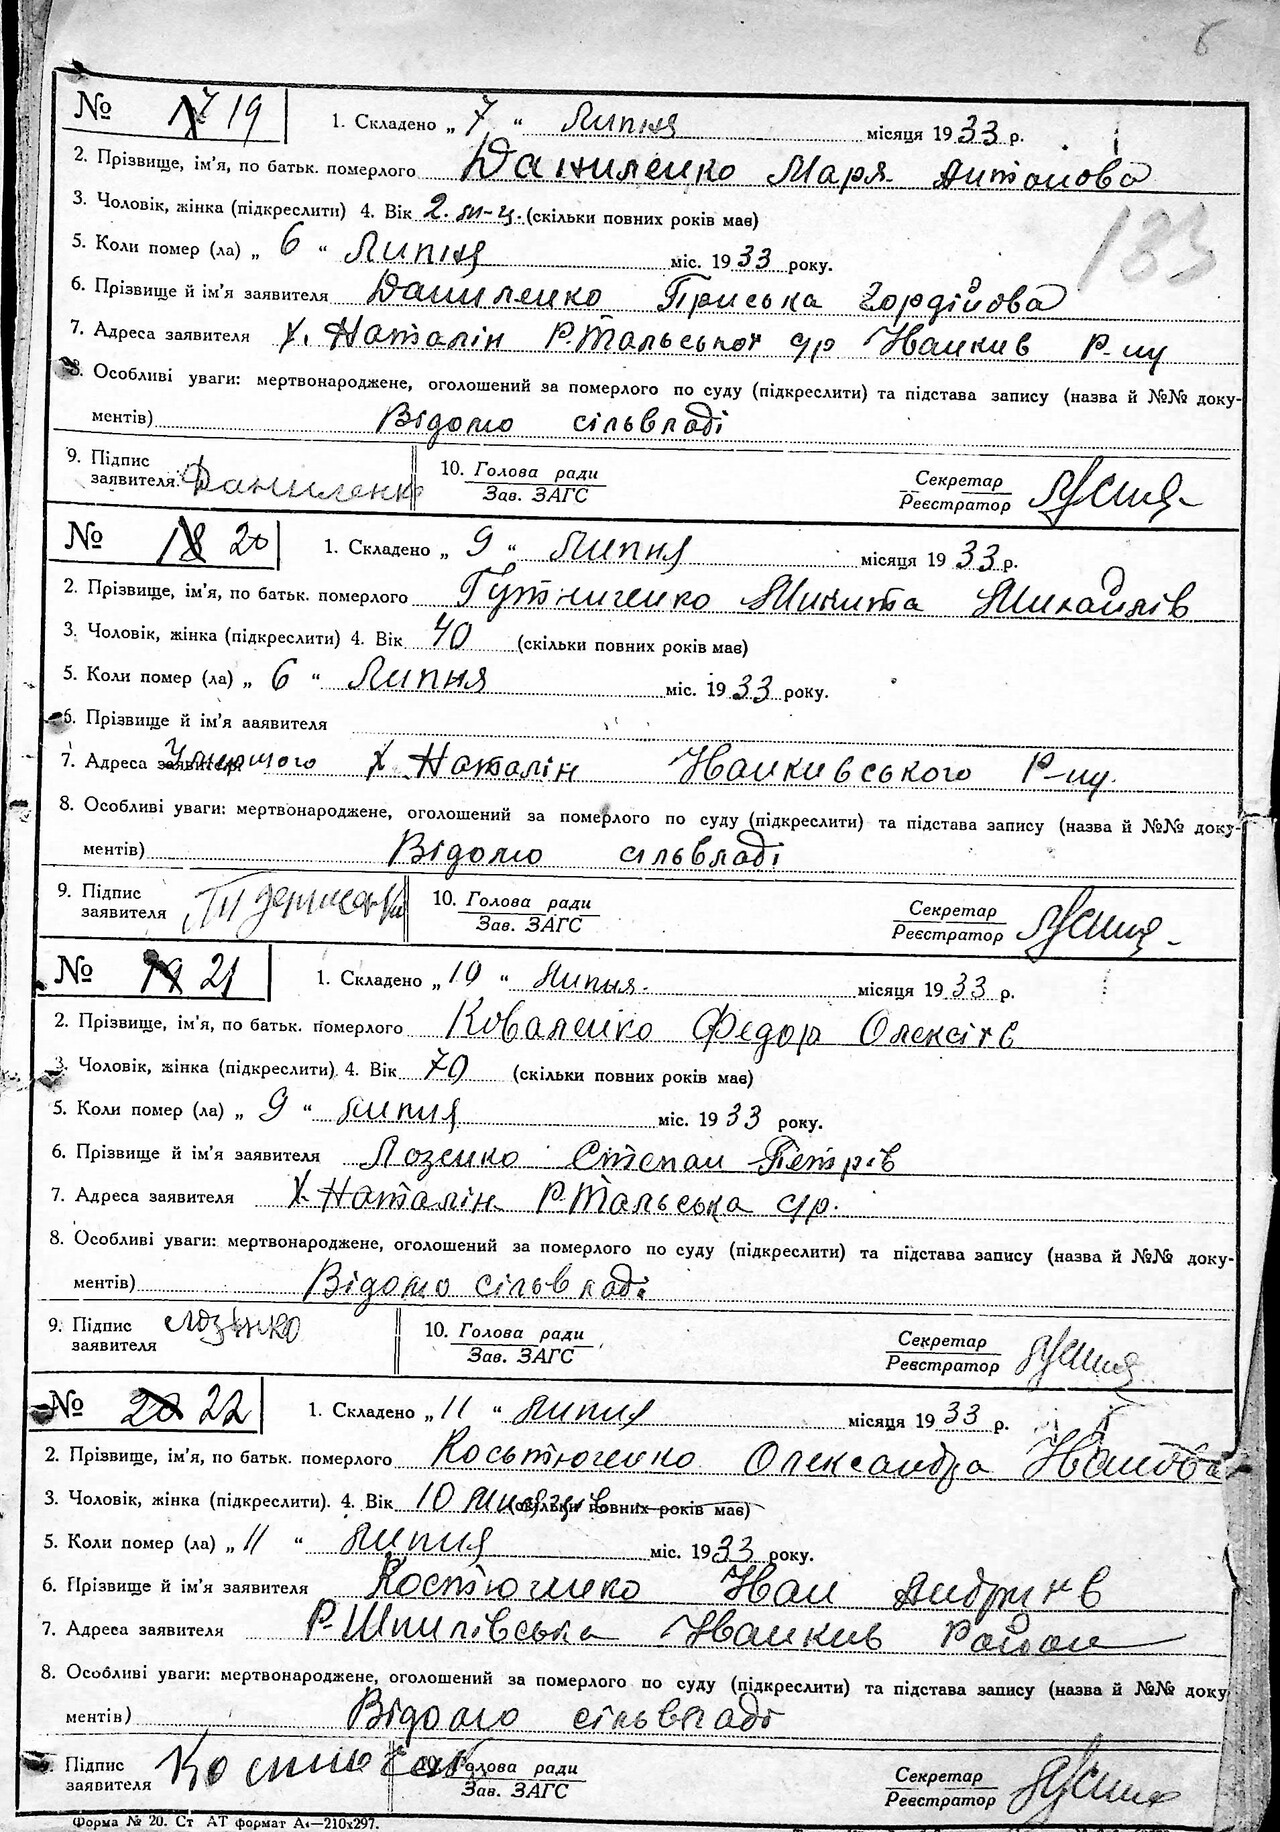 6
№ 17 19 1. Складено „ 7 “ Липня місяця 1933 р.
2. Прізвище, ім'я, по батьк. померлого Даниленко Маря Антонова
3. Чоловік, жінка (підкреслити) 4. Вік 2. м-ц. (скільки повних років має)
183
5. Коли помер (ла) „ 6 “ Липня міс. 1933 року.
6. Прізвище й ім'я заявителя Даниленко Пріська Гордійова
7. Адреса заявителя х. Наталін Р. Тальської с/р Іванкив Р-ну
8. Особливі уваги: мертвонароджене, оголошений за померлого по суду (підкреслити) та підстава запису (назва й №№ доку-
ментів) Відомо сільвладі
9. Підпис заявителя: Даниленко 10. Голова ради Зав. ЗАГС Секретар Реєстратор
№ 18 20 1. Складено „ 9 “ Липня місяця 1933 р.
2. Прізвище, ім'я, по батьк. померлого Гутниченко Микита Михайлів
3. Чоловік, жінка (підкреслити) 4. Вік 40 (скільки повних років має)
5. Коли помер (ла) „ 6 “ Липня міс. 1933 року.
6. Прізвище й ім'я заявителя
7. Адреса Умершого х Наталін Іванкивського Р-ну.
8. Особливі уваги: мертвонароджене, оголошений за померлого по суду (підкреслити) та підстава запису (назва й №№ доку-
ментів) Відомо сільвладі
9. Підпис заявителя 10. Голова ради Зав. ЗАГС Секретар Реєстратор
№ 19 21 1. Складено „ 10 “ Липня. місяця 1933 р.
2. Прізвище, ім'я, по батьк. померлого Коваленко Федор Олексіїв
3. Чоловік, жінка (підкреслити). 4. Вік 70 (скільки повних років має)
5. Коли помер (ла) „ 9 “ липня міс. 1933 року.
6. Прізвище й ім'я заявителя Лозенко Степан Петрів
7. Адреса заявителя х. Наталін Р. Тальська с/р.
8. Особливі уваги: мертвонароджене, оголошений за померлого по суду (підкреслити) та підстава запису (назва й №№ доку-
ментів) Відомо сільвладі
9. Підпис заявителя Лозінко 10. Голова ради Зав. ЗАГС Секретар Реєстратор
№ 20 22 1. Складено „ 11 “ Липня місяця 1933 р.
2. Прізвище, ім'я, по батьк. померлого Косьтюченко Олександра Іванова
3. Чоловік, жінка (підкреслити). 4. Вік 10 Місяців (скільки повних років має)
5. Коли помер (ла) „ 11 “ Липня міс. 1933 року.
6. Прізвище й ім'я заявителя Костюченко Іван Андриїв
7. Адреса заявителя Р. Шпилівська Іванкив Район
8. Особливі уваги: мертвонароджене, оголошений за померлого по суду (підкреслити) та підстава запису (назва й №№ доку
ментів) Відомо сільвладі
Підпис заявителя Голова ради Зав. ЗАГС Секретар Реєстратор
Форма № 20. Ст АТ формат А4—210х297.